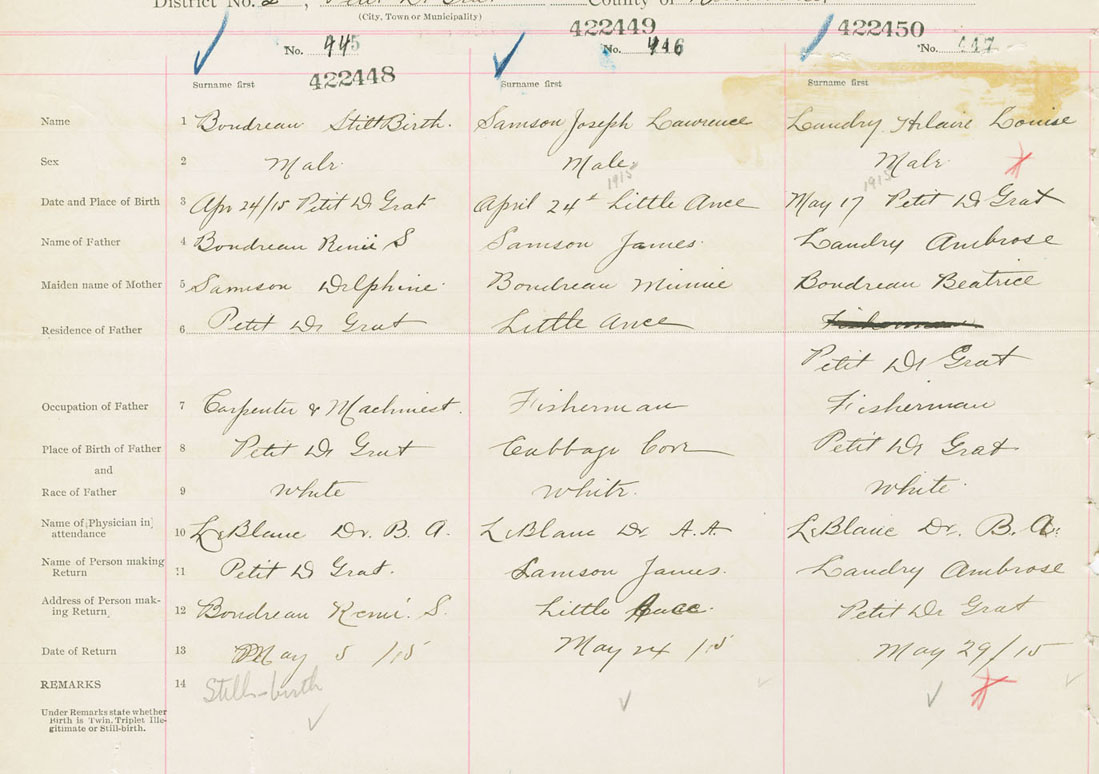 District No. 2, Petit De Grat County of
(City, Town or Municipality)
422449 422450
No. 445 No. 446 No. 447
422448
Surname first Surname first Surname first
Name 1 Boudreau StillBirth. Samson Joseph Lawrence Landry Hilaire Louise
Sex 2 Male Male Male
1915 1915
Date and Place of Birth 3 Apr 24/15 Petit D Grat April 24th Little Ance May 17 Petit D Grat
Name of Father 4 Boudreau Remi S Samson James. Landry Ambrose
Maiden name of Mother 5 Samson Delphine Boudreau Minnie Boudreau Beatrice
Residence of Father 6 Petit De Grat Little Ance Fisherman
Petit De Grat
Occupation of Father 7 Carpenter & Machinest. Fisherman Fisherman
Place of Birth of Father 8 Petit De Grat Cabbage Cove Petit De Grat
and
Race of Father 9 White White. White
Name of Physician in 10 LeBlanc Dr. B. A. LeBlanc Dr. A.A. LeBlanc Dr. B. A.
attendance
Name of Person making 11 Petit D Grat. Samson James. Landry Ambrose
Return
Address of Person mak- 12 Boudreau Remi. S. Little Ance. Petit De Grat
ing Return
Date of Return 13 May 5 /15 May 24 /15 May 29/15
REMARKS 14 Still-birth
Under Remarks state whether
Birth is Twin, Triplet Ille-
gitimate or Still-birth.